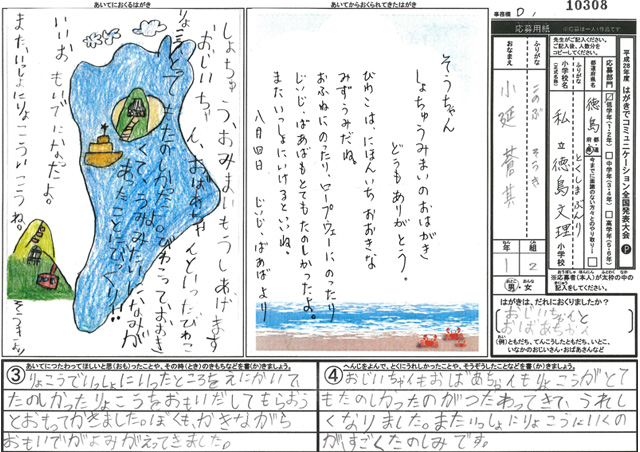 10308
事務欄 D
応募用紙
平成28年度 はがきでコミュニケーション全国発表大会 P
先生がご記入ください。
ご記入後、人数分を
コピーしてください。
応募部門
低学年(1・2年)
中学年(3・4年)
高学年(5・6年)
都道府県名
徳島
都・道
府・県
今までに面識のない方々とのやり取り
ふりがな
とくしまぶんり
小学校名
(正式名称)
私立徳島文理
小学校
ふりがな
このぶ そうき
おなまえ
小延 蒼其
1 年
2 組
男・女
※応募者(本人)が太枠の中の
記入をしてください。
はがきは、だれにおくりましたか?
おじいちゃんと
おばあちゃん
(例)ともだち、てんこうしたともだち、いとこ、
いなかのおじいさん・おばあさんなど
あいてからおくられてきたはがき
そうちゃん
しょちゅうみまいのおはがき
どうもありがとう。
びわこは、にほんいちおおきな
みずうみだね。
おふねにのったり、ロープウェーにのったり
じいじ、ばあばもとてもたのしかったよ。
またいっしょにいけるといいね。
八月四日 じいじ、ばあばより
あいてにおくるはがき
しょちゅう、おみまいもうしあげます
おじいちゃん、おばあちゃんといったびわこ
りょこうとて
もたのしかったね。びわこっておおき
くて、うみみたい。なみが
あったことにびっくり!!
いいおもいでになったよ。
またいっしょにりょこういこうね。
そうきより
③
あいてにつたわってほしいと思(おも)ったことや、その時(とき)のきもちなどを書(か)きましょう。
りょこうでいっしょにいったところをえにかいて
たのしかったりょこうをおもいだしてもらおう
とおもってかきました。ぼくも、かきながら
おもいでがよみがえってきました。
④
へんじをよんで、とくにうれしかったことや、そうぞうしたことなどを書(か)きましょう。
おじいちゃんもおばあちゃんもりょこうがとて
もたのしかったのがつたわってきて、うれし
くなりました。またいっしょにりょこうにいくの
がすごくたのしみです。